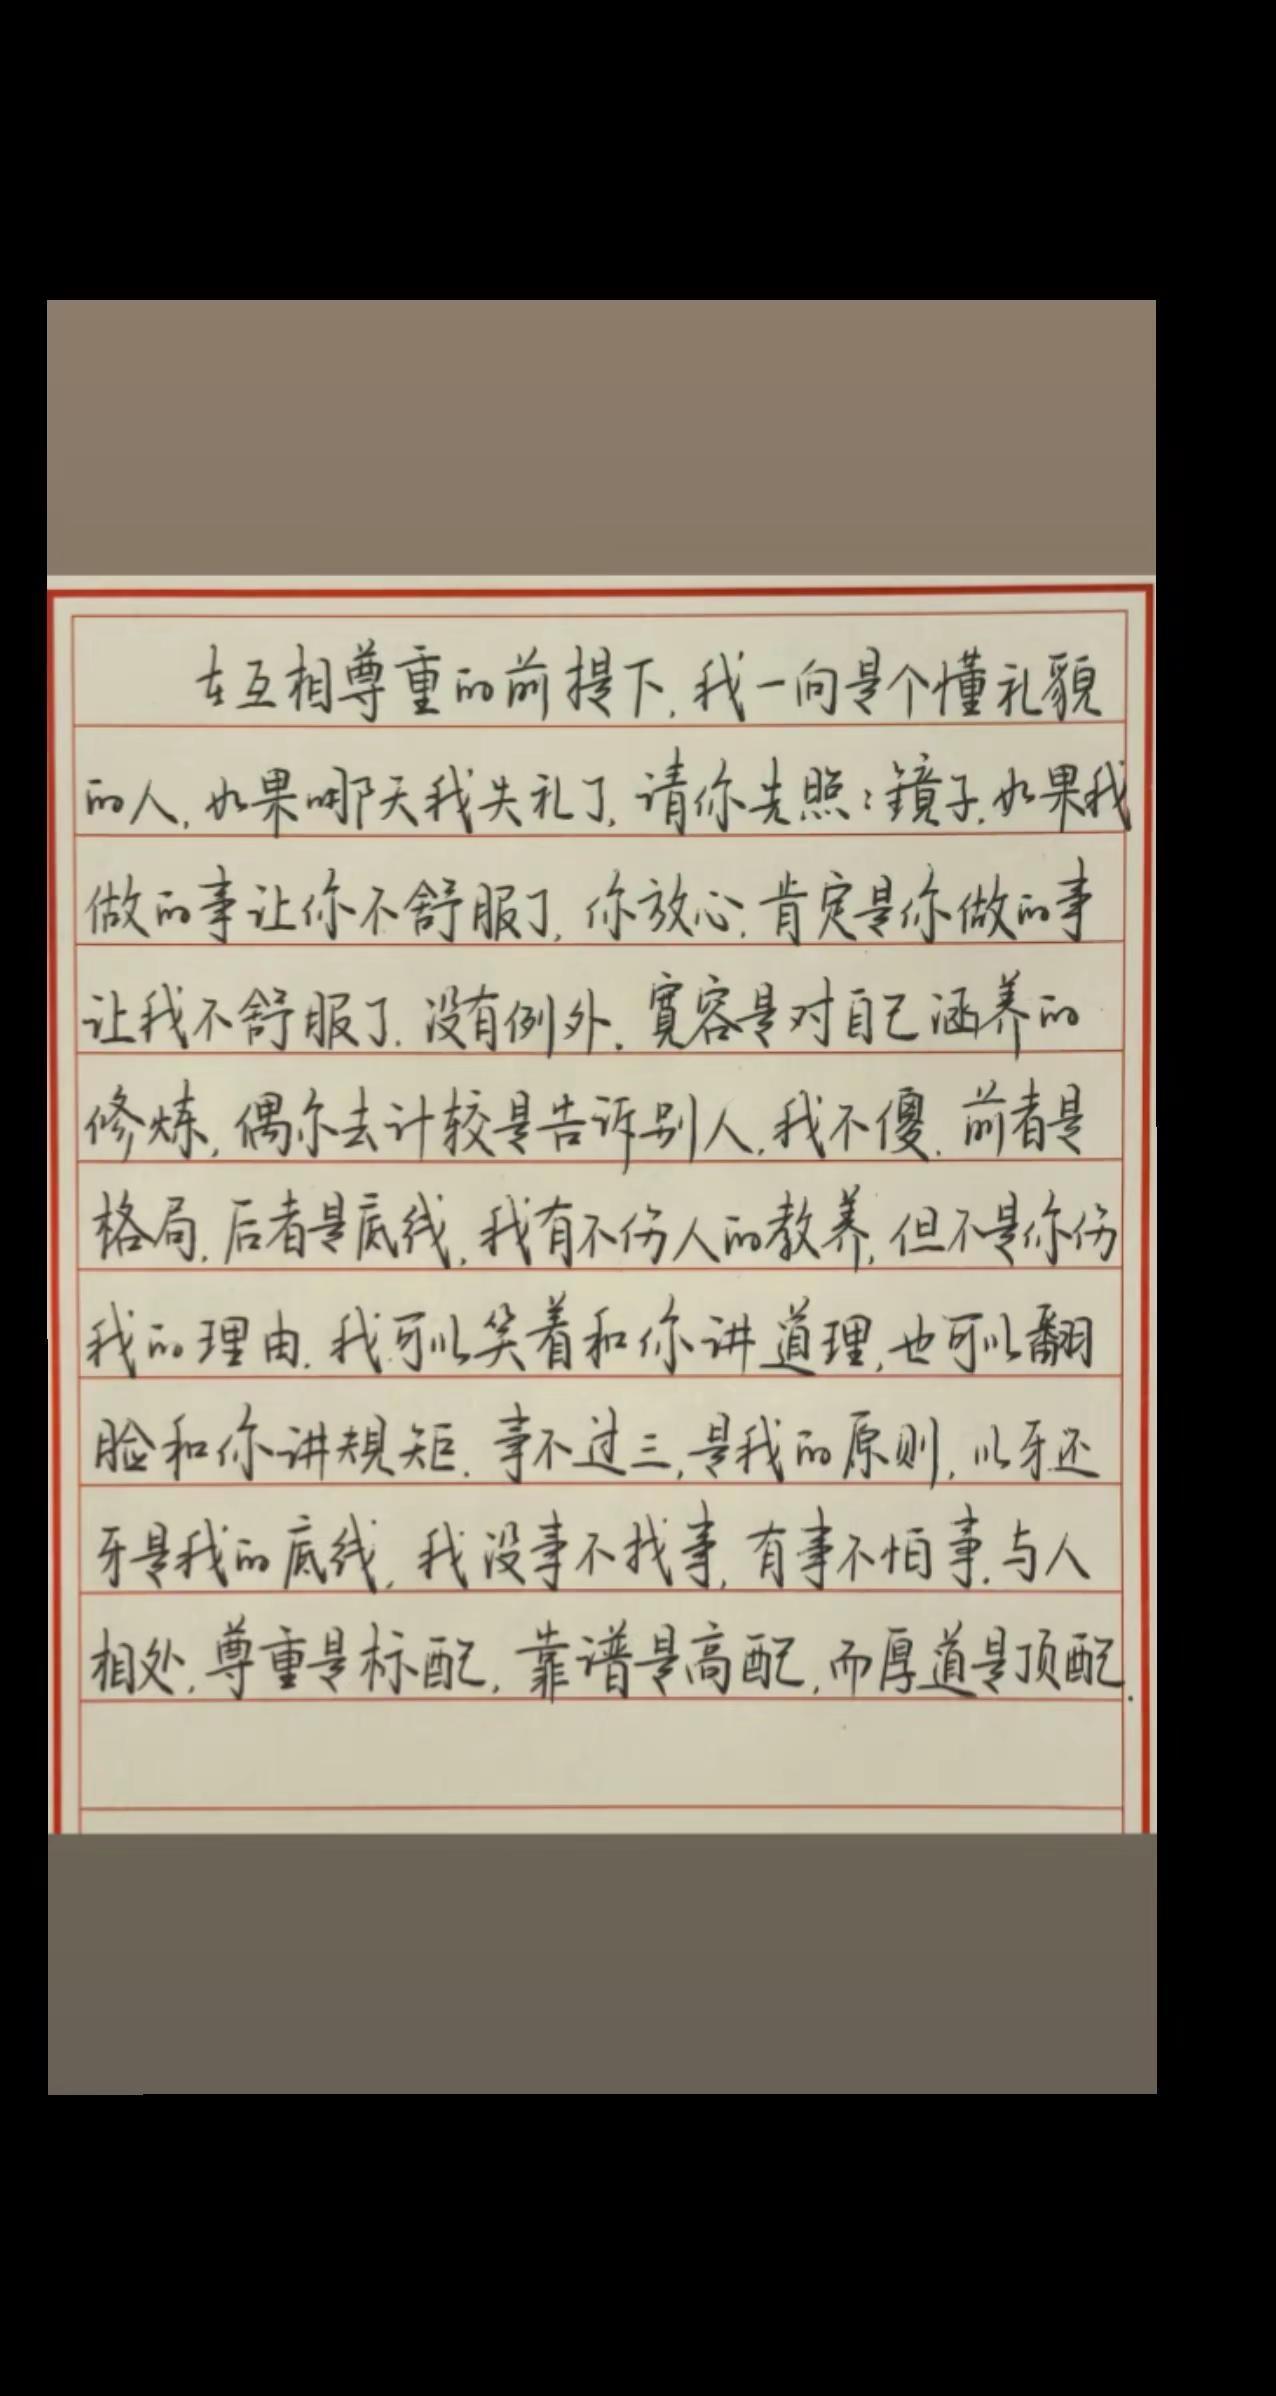 在互相尊重的前提下,我一向是个懂礼貌
的人,如果哪天我失礼了,请你先照:镜子.如果我
做的事让你不舒服了,你放心,肯定是你做的事
让我不舒服了.没有例外.宽容是对自己涵养的
修炼,偶尔去计较是告诉别人,我不傻.前者是
格局,后者是底线,我有不伤人的教养,但不是你伤
我的理由.我可以笑着和你讲道理,也可以翻
脸和你讲规矩.事不过三,是我的原则,以牙还
牙是我的底线,我没事不找事,有事不怕事.与人
相处,尊重是标配,靠谱是高配,而厚道是顶配.